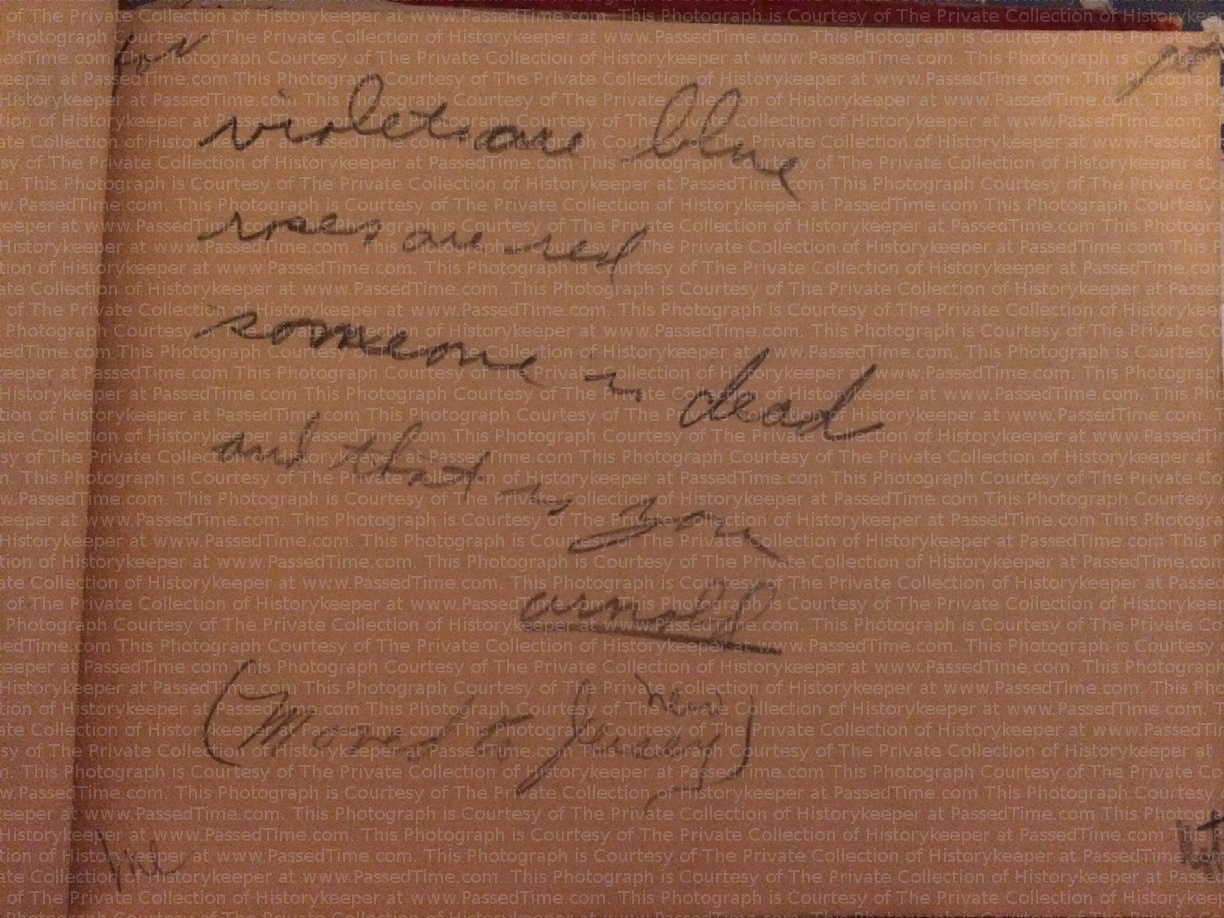 for get
violets are blue
roses are red
someone is dead
and that is you
arnold
new
(Moved to Jersey)
me
This Photograph is Courtesy of The Private Collection of Historykeeper at www.PassedTime.com.